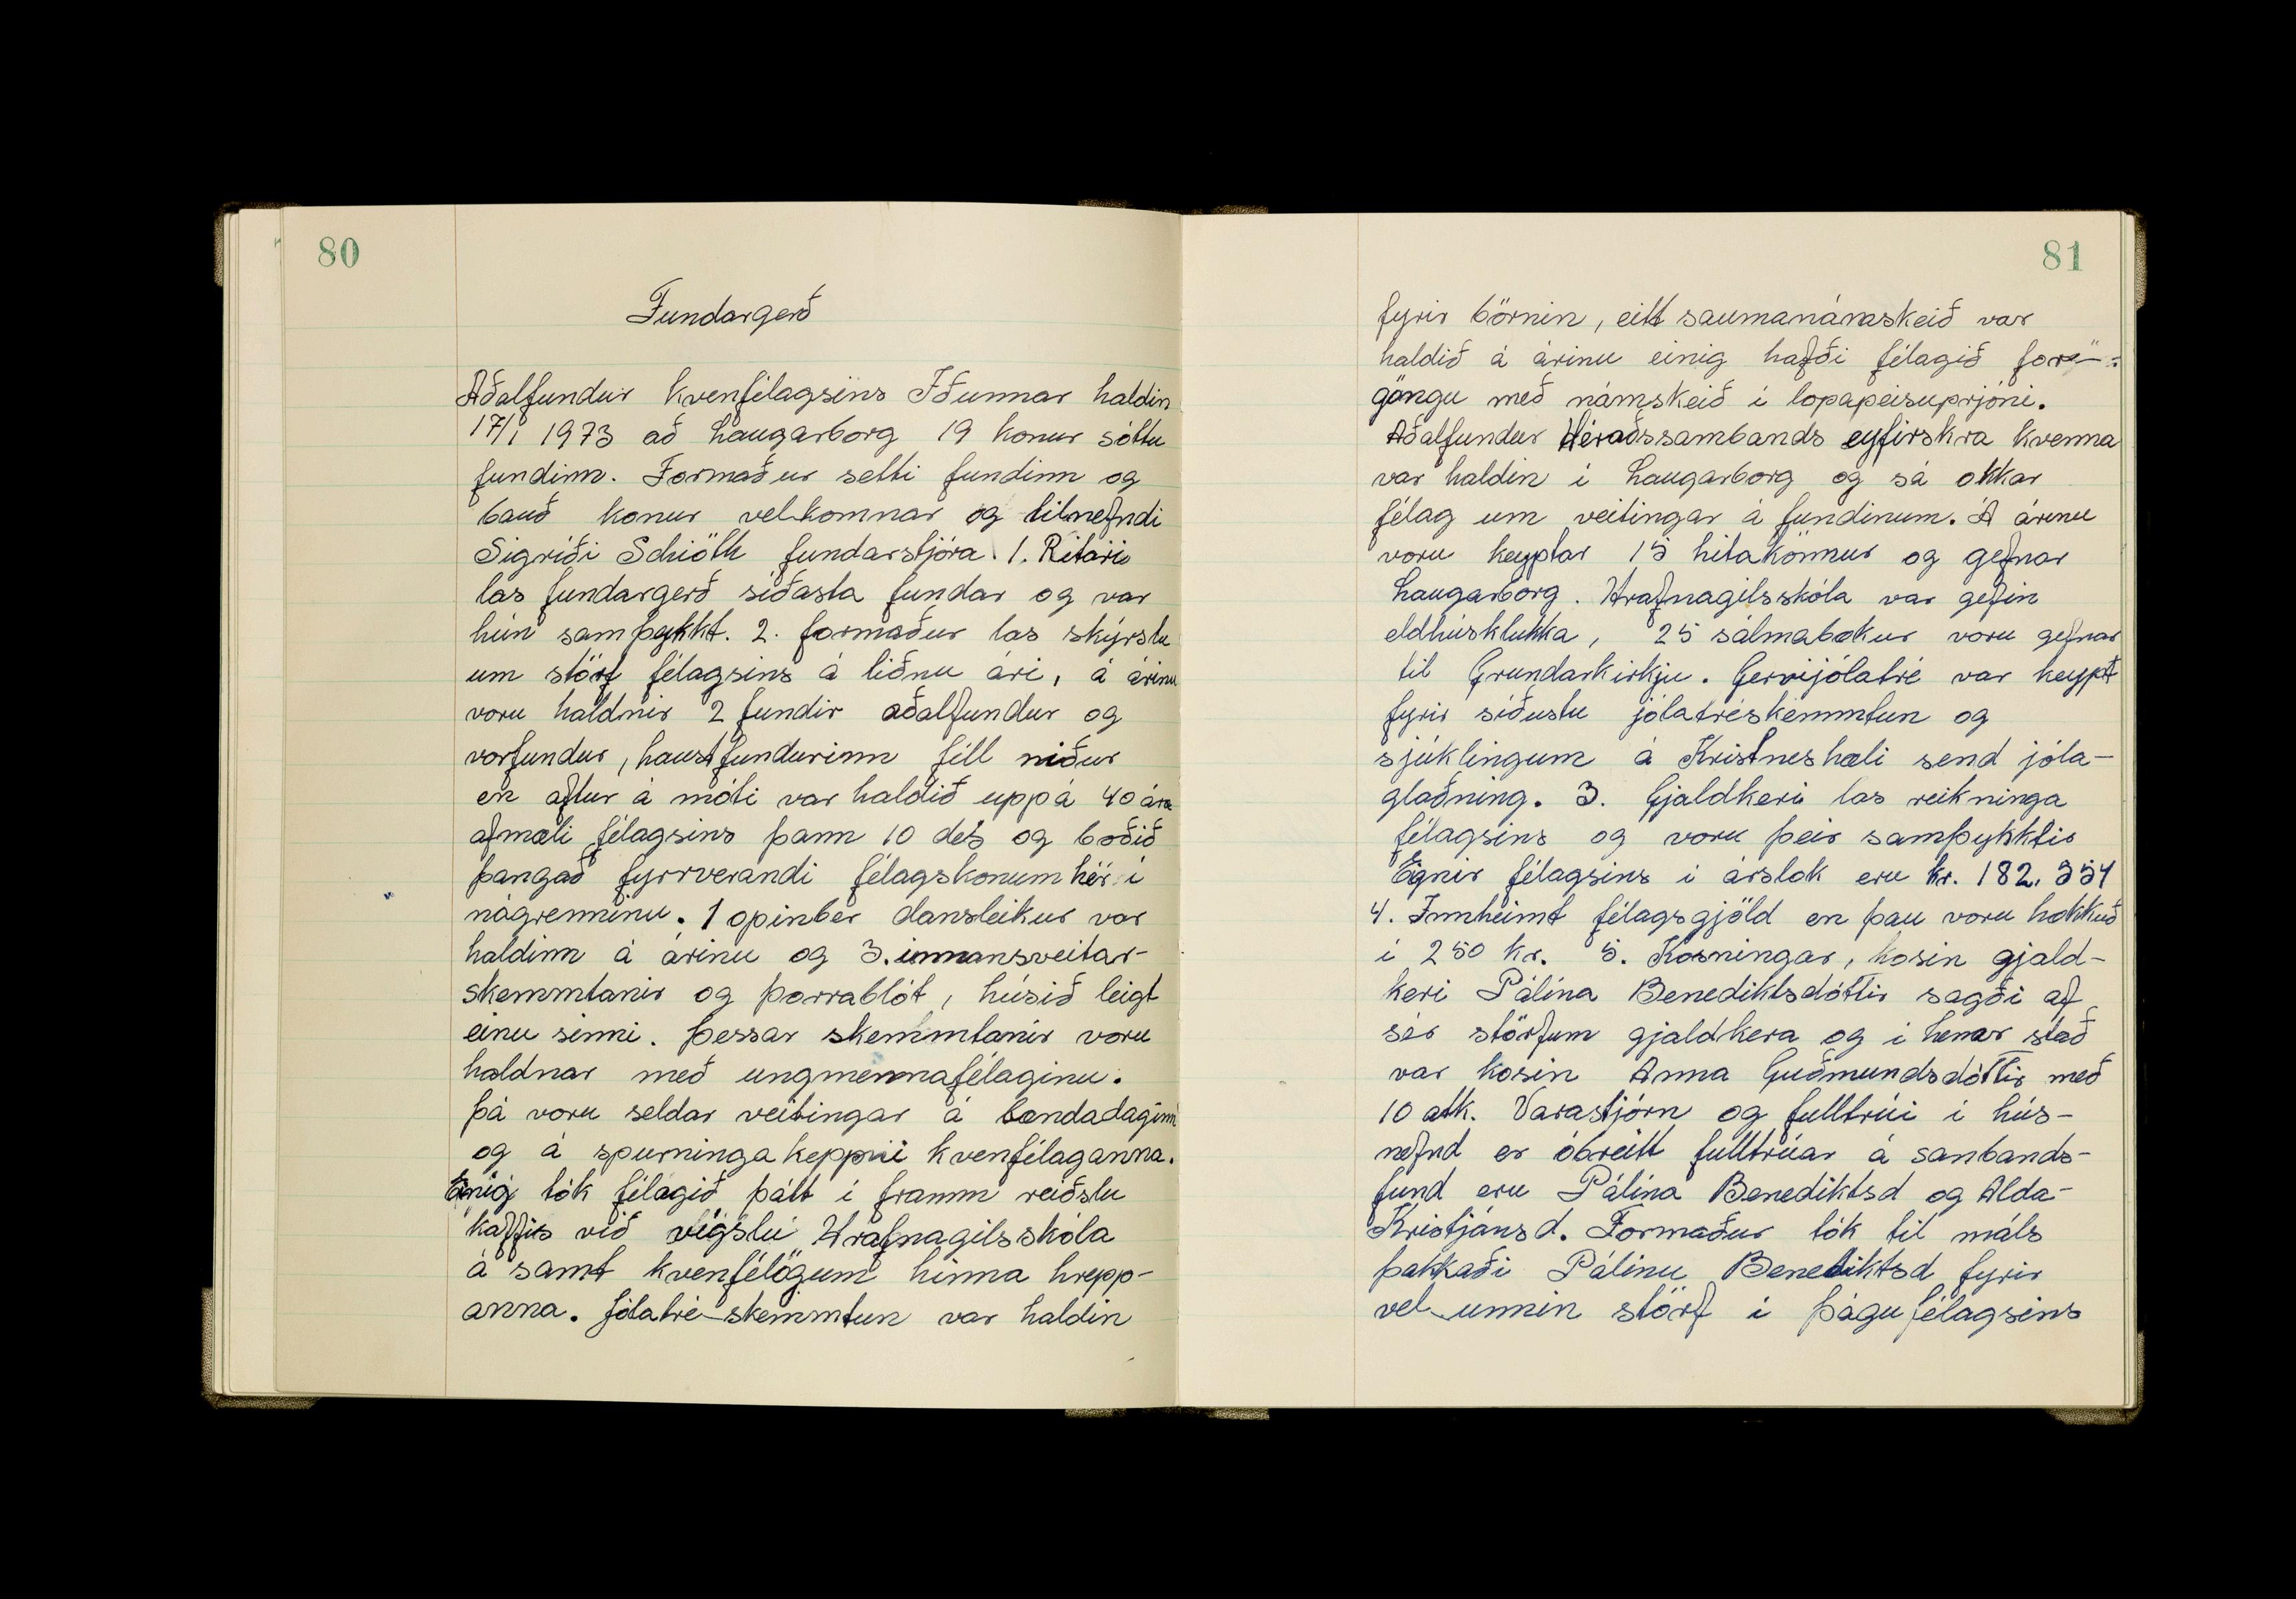 80
Fundargerð
Aðalfundur kvenfélagsins Iðunnar haldin
17/1 1973 að Laugarborg 19 konur sóttu
fundinn. Formaður setti fundinn og
bauð konur velkomnar og tilnefndi
Sigríði Schiöth fundarstjóra. 1. Ritari
las fundargerð síðasta fundar og var
hún samþykkt. 2. formaður las skýrslu
um störf félagsins á liðnu ári, á árinu
voru haldnir 2 fundir aðalfundur og
vorfundur, haustfundurinn féll niður
en aftur á móti var haldið uppá 40 ára
afmæli félagsins þann 10 des og boðið
þangað fyrrverandi félagskonum hér í
nágrenninu. 1 opinber dansleikur var
haldinn á árinu og 3. innansveitar-
skemmtanir og þorrablót, húsið leigt
einu sinni. Þessar skemmtanir voru
haldnar með ungmennafélaginu.
Þá voru seldar veitingar á bændadaginn
og á spurningakeppni kvenfélaganna.
Einig tók félagið þátt í framm reiðslu
kaffis við vígslu Hrafnagilsskóla
á samt kvenfélögum hinna hrepp-
anna. Jólatré-skemmtun var haldin
81
fyrir börnin, eitt saumanámskeið var
haldið á árinu einig hafði félagið for-
göngu með námskeið í lopapeisuprjóni.
Aðalfundur Héraðssambands eyfirskra kvenna
var haldin í Laugarborg og sá okkar
félag um veitingar á fundinum. Á árinu
voru keyptar 15 hitakönnur og gefnar
Laugarborg. Hrafnagilsskóla var gefin
eldhúsklukka, 25 sálmabækur voru gefnar
til Grundarkirkju. Gervijólatré var keypt
fyrir síðustu jólatréskemmtun og
sjúklingum á Kristneshæli send jóla-
glaðning. 3. Gjaldkeri las reikninga
félagsins og voru þeir samþykktir
Eignir félagsins í árslok eru kr. 182.354
4. Innheimt félagsgjöld en þau voru hækkuð
í 250 kr. 5. Kosningar, kosin gjald-
keri Pálína Benediktsdóttir sagði af
sér störfum gjaldkera og í henar stað
var kosin Anna Guðmundsdóttir með
10 atk. Varastjórn og fulltrúi í hús-
nefnd er óbreitt fulltrúar á sanbands-
fund eru Pálína Benediktsd og Alda-
Kristjánsd. Formaður tók til máls
þakkaði Pálínu Benediktsd fyrir
vel unnin störf í þágu félagsins